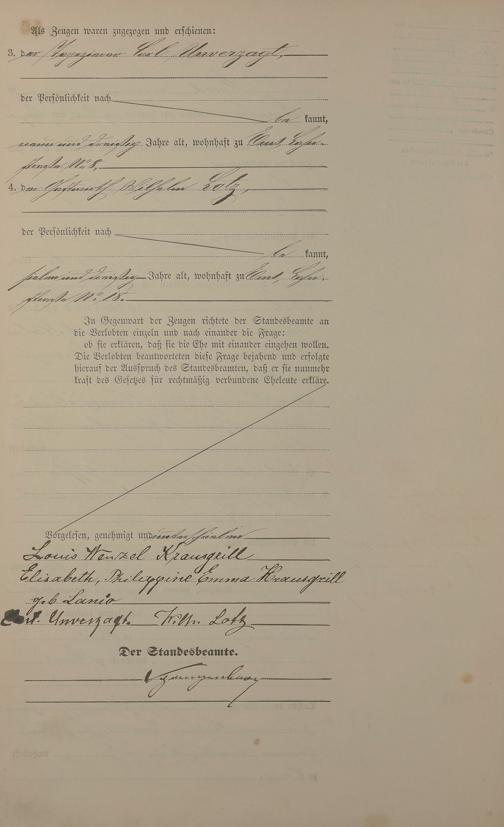 Als Zeugen waren zugezogen und erschienen:
3. der Tapezierer Carl Unverzagt,
der Persönlichkeit nach
be kannt,
neun und dreißig Jahre alt, wohnhaft zu Ems,
straße No 8,
4. der Gastwirth Wilhelm Lotz,
der Persönlichkeit nach
be kannt,
sieben und dreißig Jahre alt, wohnhaft zu Ems,
straße No 18.
In Gegenwart der Zeugen richtete der Standesbeamte an
die Verlobten einzeln und nach einander die Frage:
ob sie erklären, daß sie die Ehe mit einander eingehen wollen.
Die Verlobten beantworteten diese Frage bejahend und erfolgte
hierauf der Ausspruch des Standesbeamten, daß er sie nunmehr
kraft des Gesetzes für rechtmäßig verbundene Eheleute erkläre.
Vorgelesen, genehmigt und unterschrieben
Louis Wenzel Krausgrill
Elisabeth, Philippine Emma Krausgrill
geb. Lanio
Carl Unverzagt. Wilh. Lotz
Der Standesbeamte.